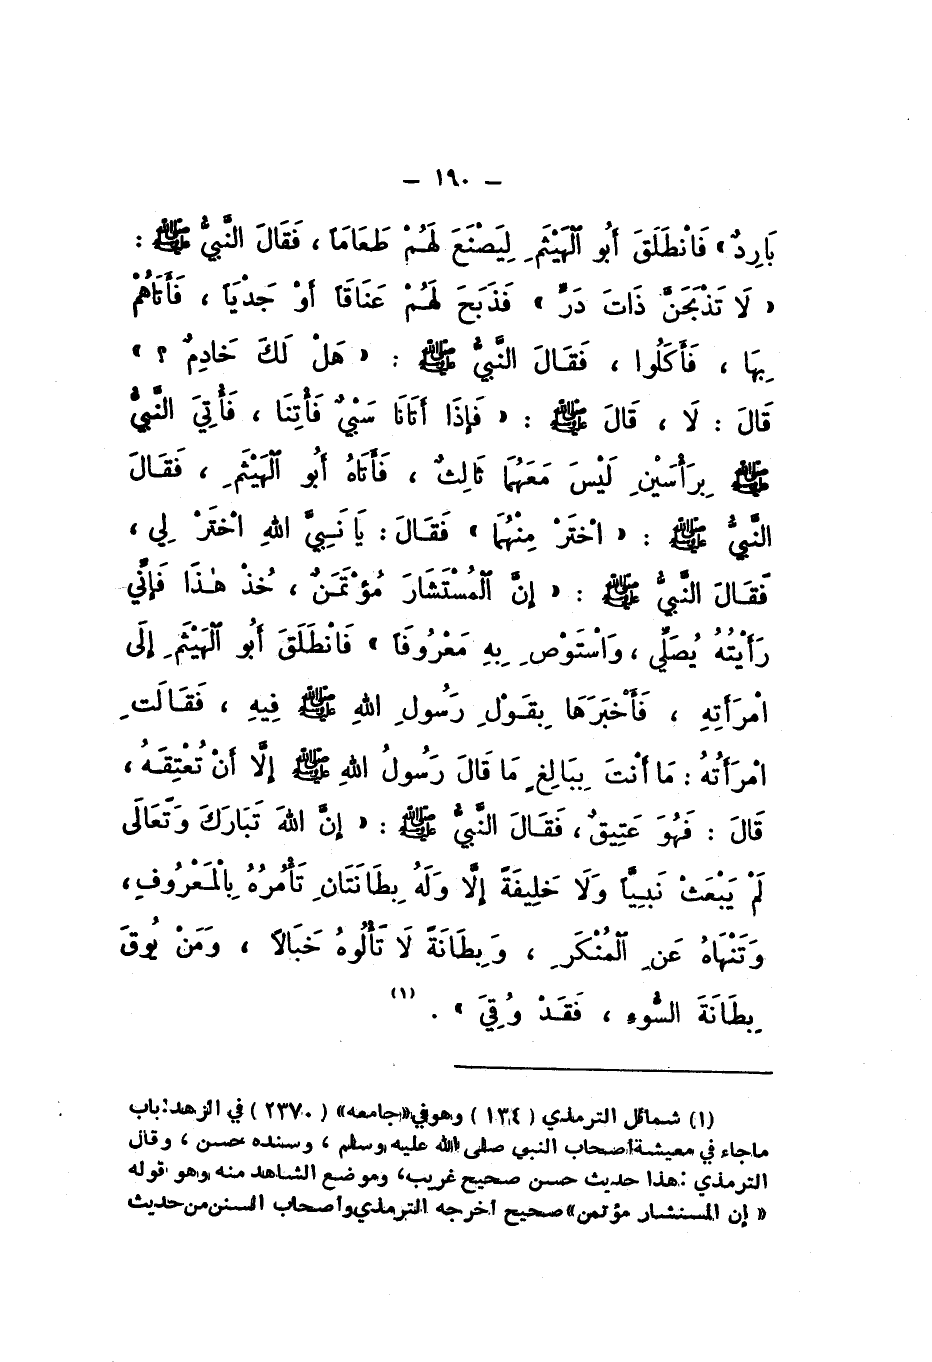 – ١٩٠ –
بَارِدٌ» فَانْطَلَقَ أَبُو ٱلْهَيْثَمِ لِيَصْنَعَ لَهُمْ طَعَامَاً ، فَقَالَ النَّبيُّ ﷺ :
« لَا تَذْبَحَنَّ ذَاتَ دَرٍّ » فَذَبَحَ لَهُمْ عَنَاقَاً أَوْ جَدْيَاً ، فَأَتَاهُمْ
بِهَا ، فَأَكَلُوا ، فَقَالَ النَّبيُّ ﷺ : « هَلْ لَكَ خَادِمٌ ؟ »
قَالَ : لَا ، قَالَ ﷺ : « فَإِذَا أَتَانَا سَبْيٌ فَأْتِنَا ، فَأُتِيَ النَّبيُّ
ﷺ بِرَأْسَيْنِ لَيْسَ مَعَهُمَا ثَالِثٌ ، فَأَتَاهُ أَبُو ٱلْهَيْثَمِ ، فَقَالَ
النَّبيُّ ﷺ : « اخْتَرْ مِنْهُمَا » فَقَالَ : يَا نَبِيَّ اللهِ اخْتَرْ لِي ،
فَقَالَ النَّبيُّ ﷺ : « إِنَّ ٱلْمُسْتَشَارَ مُؤْتَمَنٌ ، خُذْ هٰذَا فَإِنِّي
رَأَيْتُهُ يُصَلِّي ، وَاسْتَوْصِ بِهِ مَعْرُوفَاً » فَانْطَلَقَ أَبُو ٱلْهَيْثَمِ إِلَى
امْرَأَتِهِ ، فَأَخْبَرَهَا بِقَوْلِ رَسُولِ اللهِ ﷺ فِيهِ ، فَقَالَتِ
امْرَأَتُهُ : مَا أَنْتَ بِبَالِغٍ مَا قَالَ رَسُولُ اللهِ ﷺ إِلَّا أَنْ تُعْتِقَهُ ،
قَالَ : فَهُوَ عَتِيقٌ ، فَقَالَ النَّبيُّ ﷺ : « إِنَّ اللهَ تَبَارَكَ وَتَعَالَى
لَمْ يَبْعَثْ نَبِيَّاً وَلَا خَلِيفَةً إِلَّا وَلَهُ بِطَانَتَانِ تَأْمُرُهُ بِالْمَعْرُوفِ ،
وَتَنْهَاهُ عَنِ ٱلْمُنْكَرِ ، وَبِطَانَةً لَا تَأْلُوهُ خَبَالاً ، وَمَنْ يُوقَ
بِطَانَةَ السُّوءِ ، فَقَدْ وُقِيَ » . (١)
(١) شمائل الترمذي ( ١٣٤ ) وهو في «جامعه» ( ٢٣٧٠ ) في الزهد : باب
ماجاء في معيشة أصحاب النبي صلى الله عليه وسلم ، وسنده حسن ، وقال
الترمذي : هذا حديث حسن صحيح غريب ، وموضع الشاهد منه وهو قوله
« إن المستشار مؤتمن » صحيح أخرجه الترمذي وأصحاب السنن من حديث